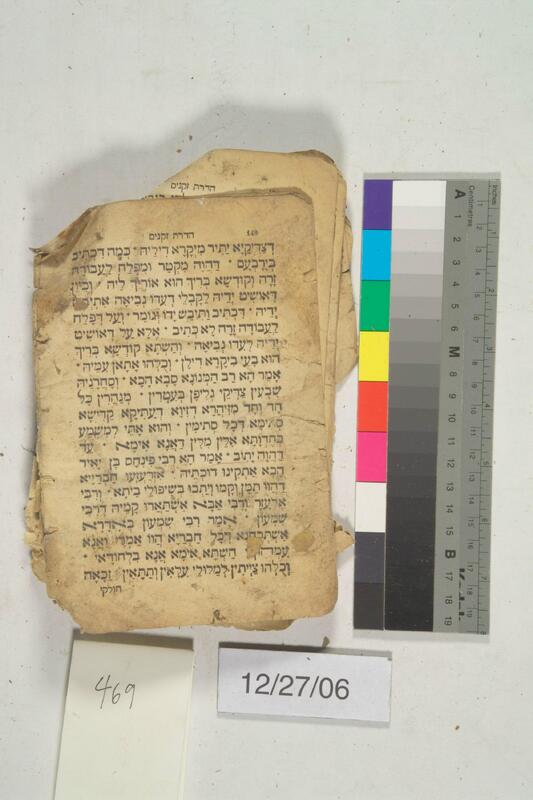 הדרת זקנים
הדרת זקנים
149
דְצַדִּיקַיָּא יַתִּיר מִיְּקָרָא דִילֵיהּ · כְּמָה דִכְתִיב
בְּיָרָבְעָם · דַּהֲוָה מְקַטֵּר וּמְפַלַּח לַעֲבוֹדָה
זָרָה וְקוּדְשָׁא בְּרִיךְ הוּא אוֹרִיךְ לֵיהּ · וְכֵיוָן
דְּאוֹשִׁיט יְדֵיהּ לָקֳבְלֵי דְעִדּוֹ נְבִיאָה
יְדֵיהּ · דִּכְתִיב וַתִּיבַשׁ יָדוֹ וְגוֹמֵר · וְעַל דְּפָלַח
לַעֲבוֹדָה זָרָה לָא כְתִיב · אֶלָּא עַל דְּאוֹשִׁיט
יְדֵיהּ לְעִדּוֹ נְבִיאָה · וְהַשְׁתָּא קוּדְשָׁא בְּרִיךְ
הוּא בָּעֵי בִּיקָרָא דִילָן · וְכֻלְּהוּ אָתָאן עִמֵּיהּ ·
אָמַר הָא רַב הַמְנוּנָא סָבָא הָכָא · וְסָחֲרָנֵיהּ
שַׁבְעִין צַדִּיקֵי גְּלִיפָן בְּעִטְרִין · מְנַהֲרִין כָּל
חַד וְחַד מִזִּיהֲרָא דְזִיוָא דְעַתִּיקָא קַדִּישָׁא
סְתִימָא דְּכָל סְתִימִין · וְהוּא אָתֵי לְמִשְׁמַע
בְּחֶדְוָתָא אִלֵּין מִלִּין דַּאֲנָא אֵימָא · עַד
דַּהֲוָה יָתִיב · אָמַר הָא רַבִּי פִּינְחָס בֶּן יָאִיר
הָכָא אַתְקִינוּ דוּכְתֵּיהּ · אִזְדַּעְזְעוּ חַבְרַיָּיא
דַּהֲווֹ תַמָּן וְקָמוּ וְיָתְבוּ בְּשִׁיפּוּלֵי בֵיתָא · וְרַבִּי
אֶלְעָזָר וְרַבִּי אַבָּא אִשְׁתָּאֲרוּ קַמֵּיהּ דְּרַבִּי
שִׁמְעוֹן · אָמַר רַבִּי שִׁמְעוֹן בְּאִדָּרָא
אִשְׁתְּכַחְנָא דְּכָל חַבְרַיָּא הֲווֹ אָמְרֵי וַאֲנָא
עִמְּהוֹן · הַשְׁתָּא אֵימָא אֲנָא בִּלְחוֹדָאי ·
וְכֻלְּהוּ צַיְיתִין לְמִלּוּלֵי עִלָּאִין וְתַתָּאִין · זַכָּאָה
חוּלָקִי
Inches
Centimetres
A 1 2 3 4 5 6 M 8 9 10 11 12 13 14 15 B 17 18 19
469
12/27/06